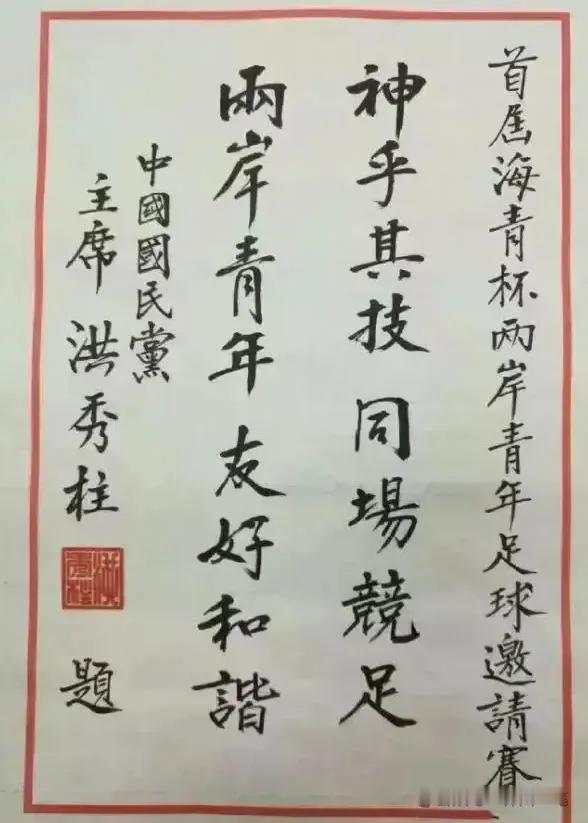 首屆海青杯兩岸青年足球邀請賽
神乎其技 同場競足
兩岸青年 友好和諧
中國國民黨
主席 洪秀柱
洪秀柱
題